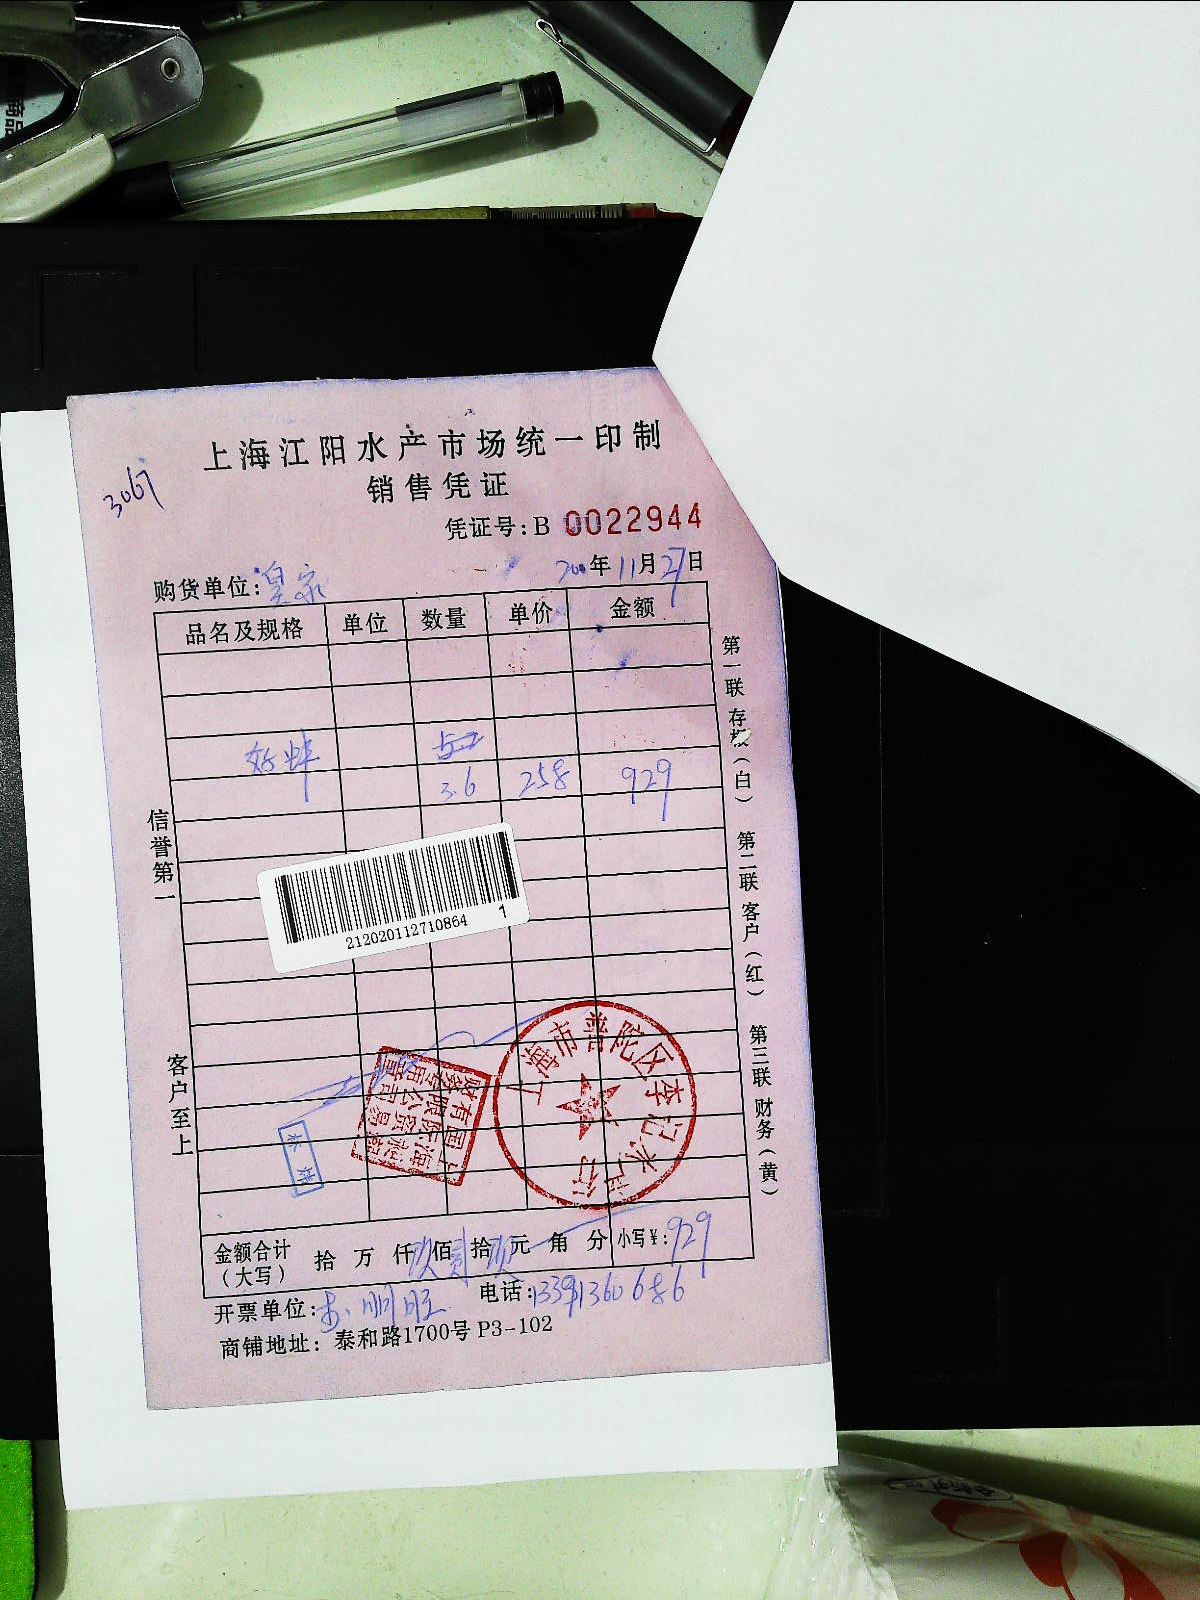 上海江阳水产市场统一印制
销售凭证
3067
凭证号:B 0022944
购货单位:皇家 年11月27日
品名及规格 单位 数量 单价 金额
3.6 258 929
212020112710864 1
信誉第一
客户至上
第一联 存根(白) 第二联 客户(红) 第三联 财务(黄)
上海市普陀区李记水产行
金额合计(大写) 拾 万 仟 玖佰 贰拾 玖元 角 分 小写¥:929
开票单位: 电话:13391360686
商铺地址: 泰和路1700号 P3-102